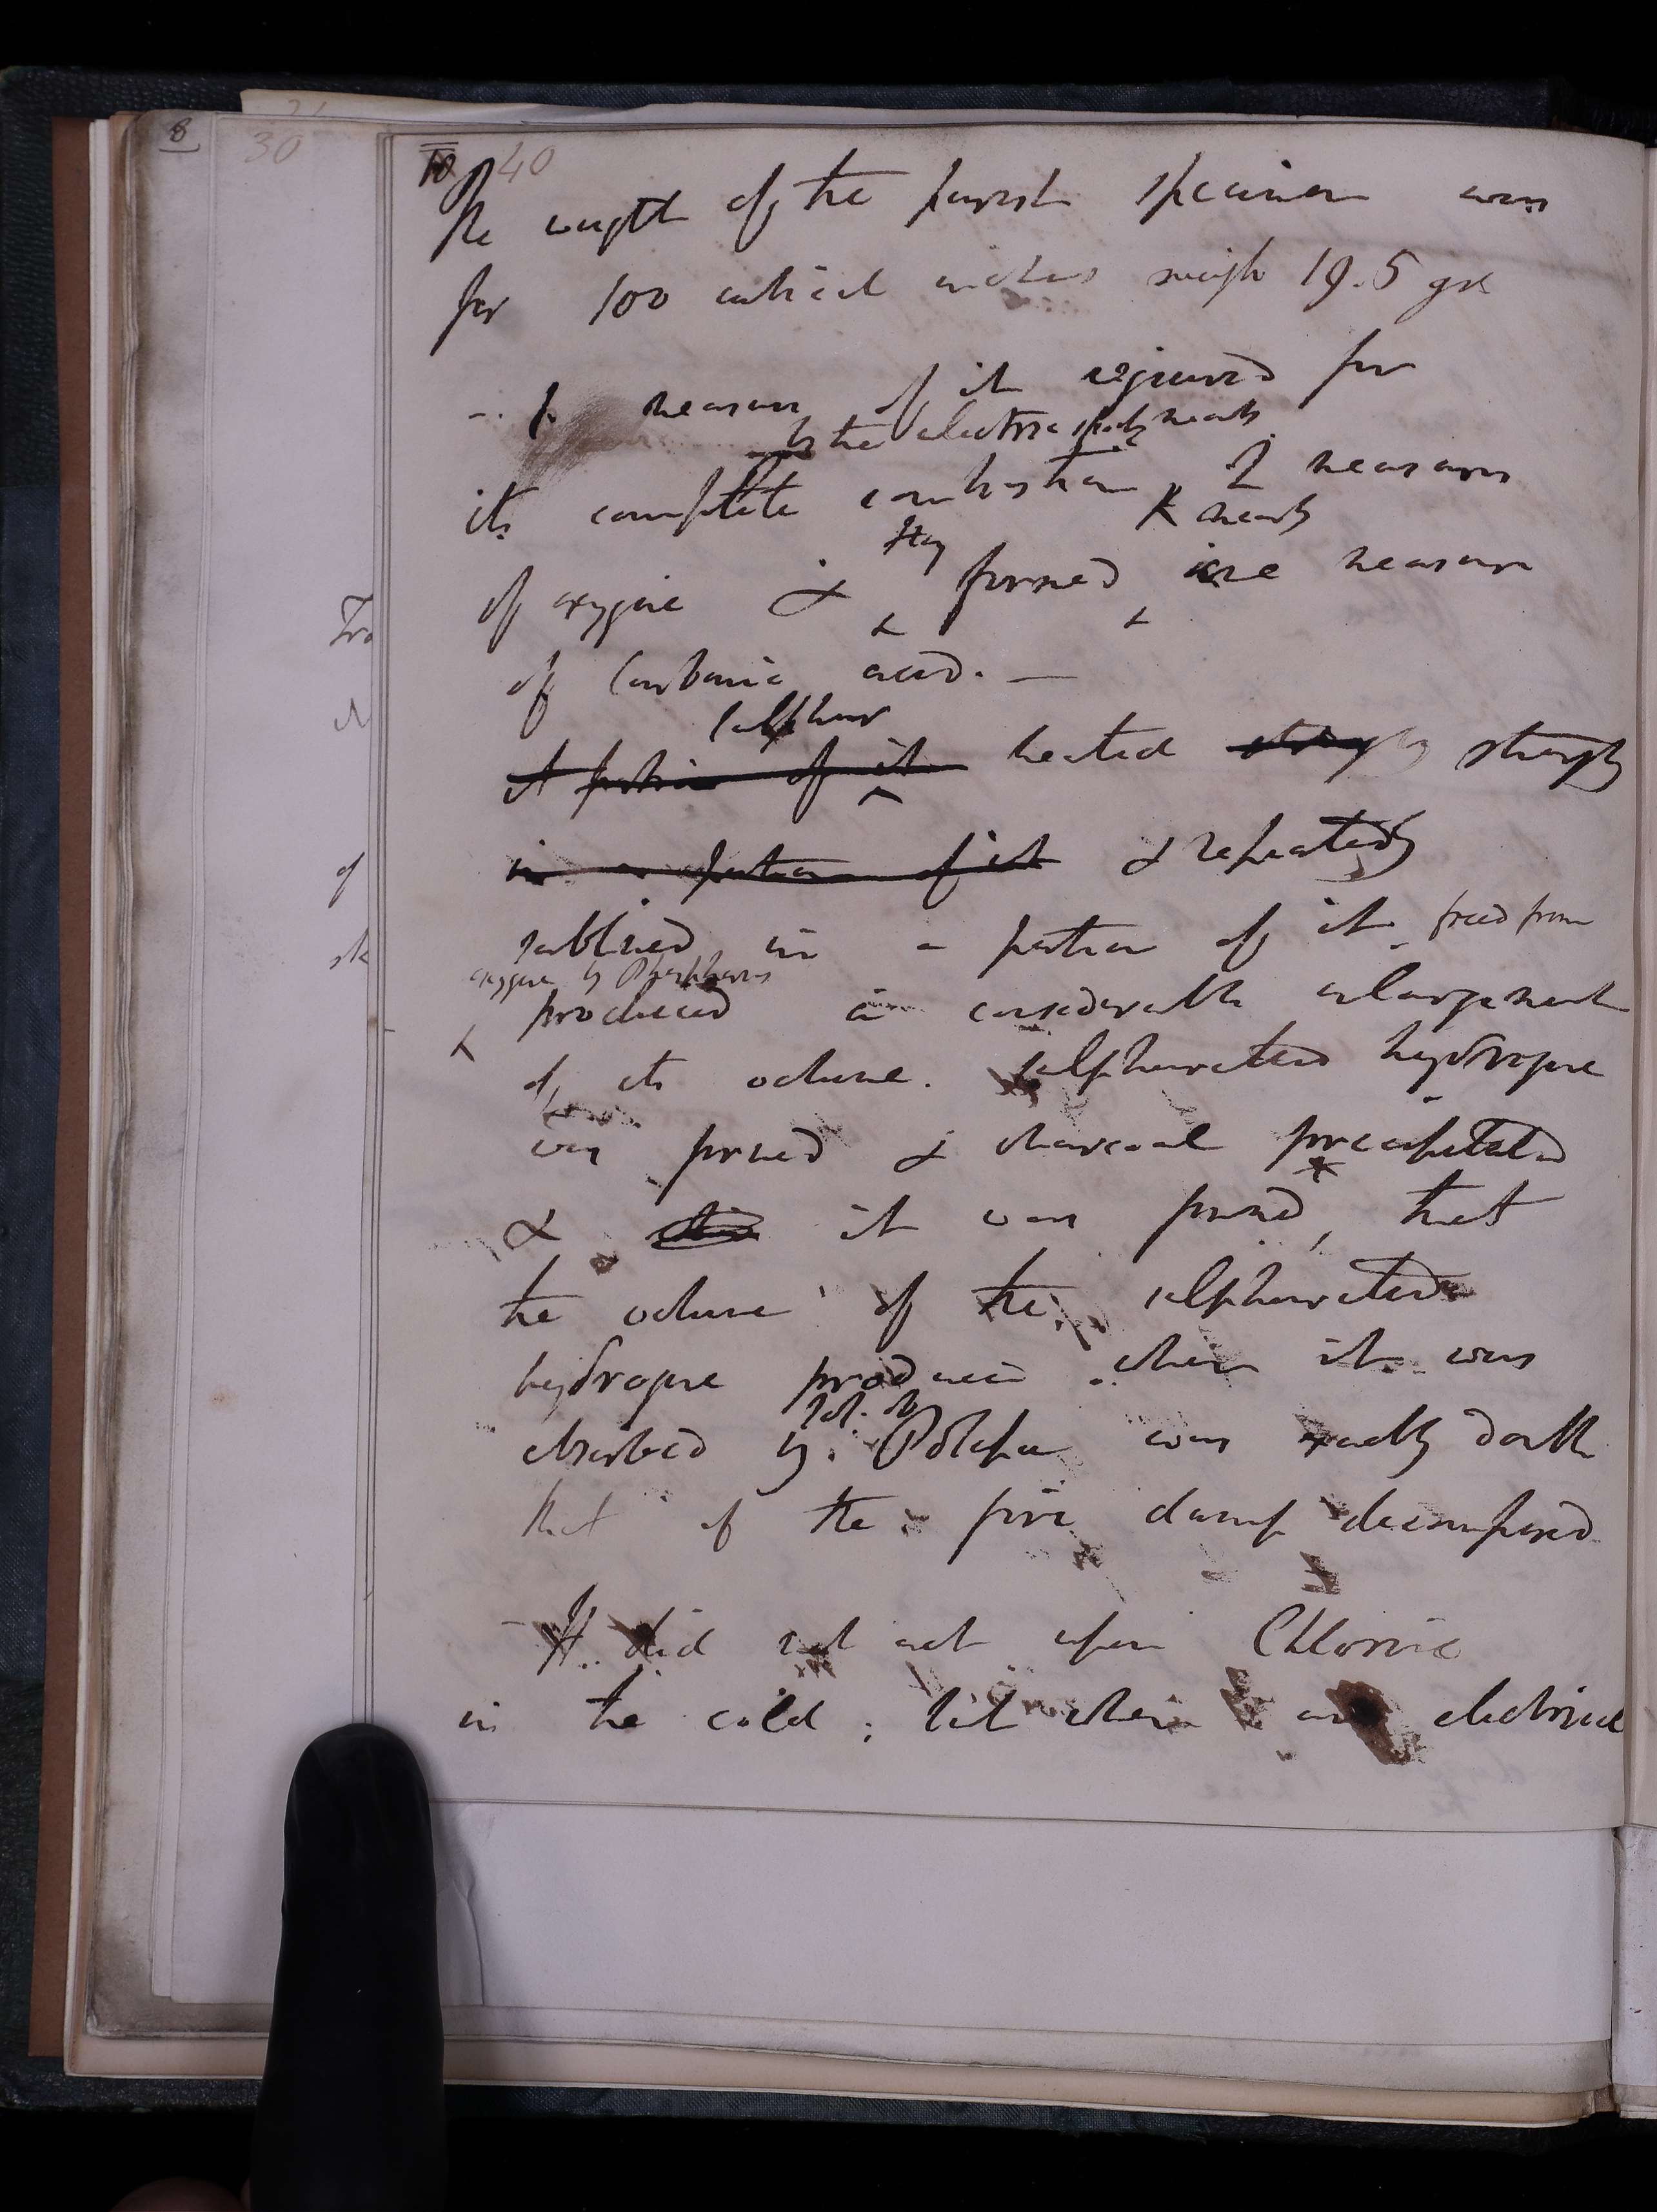 8
30
10 40
The weight of the purest specimen was
for 100 cubical inches weigh 19.5 grs
1 measure of it required for
by the electric spark nearly
its complete combustion 2 measures
nearly
they
of oxygene & formed one measure
of Carbonic acid. —
sulphur
A portion of it heated strongly strongly
in a portion of it & repeatedly
sublimed in a portion of it freed from
oxygene by Phosphorus
produced a considerable enlargement
of its volume. sulphurated hydrogene
was formed & charcoal precipitated
& this it was found, that
the volume of the sulphurated
hydrogene produced when it was
sol. of
absorbed by Potassa was exactly double
that of the fire damp decomposed
- It did not act upon Chlorine
in the cold; but when an electrical